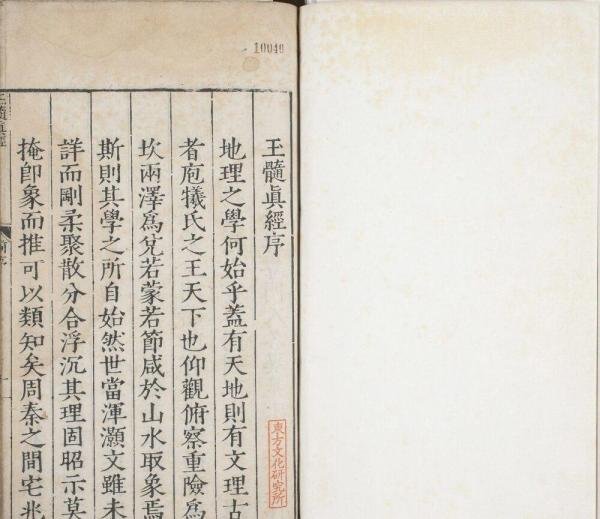 10040
玉髓眞經序
地理之學何始乎蓋有天地則有文理古
者庖犧氏之王天下也仰觀俯察重險爲
坎兩澤爲兌若蒙若節咸於山水取象焉
斯則其學之所自始然世當渾灝文雖未
詳而剛柔聚散分合浮沉其理固昭示莫
掩卽象而推可以類知矣周秦之間宅兆
玉髓眞經
前序
東方文化研究所